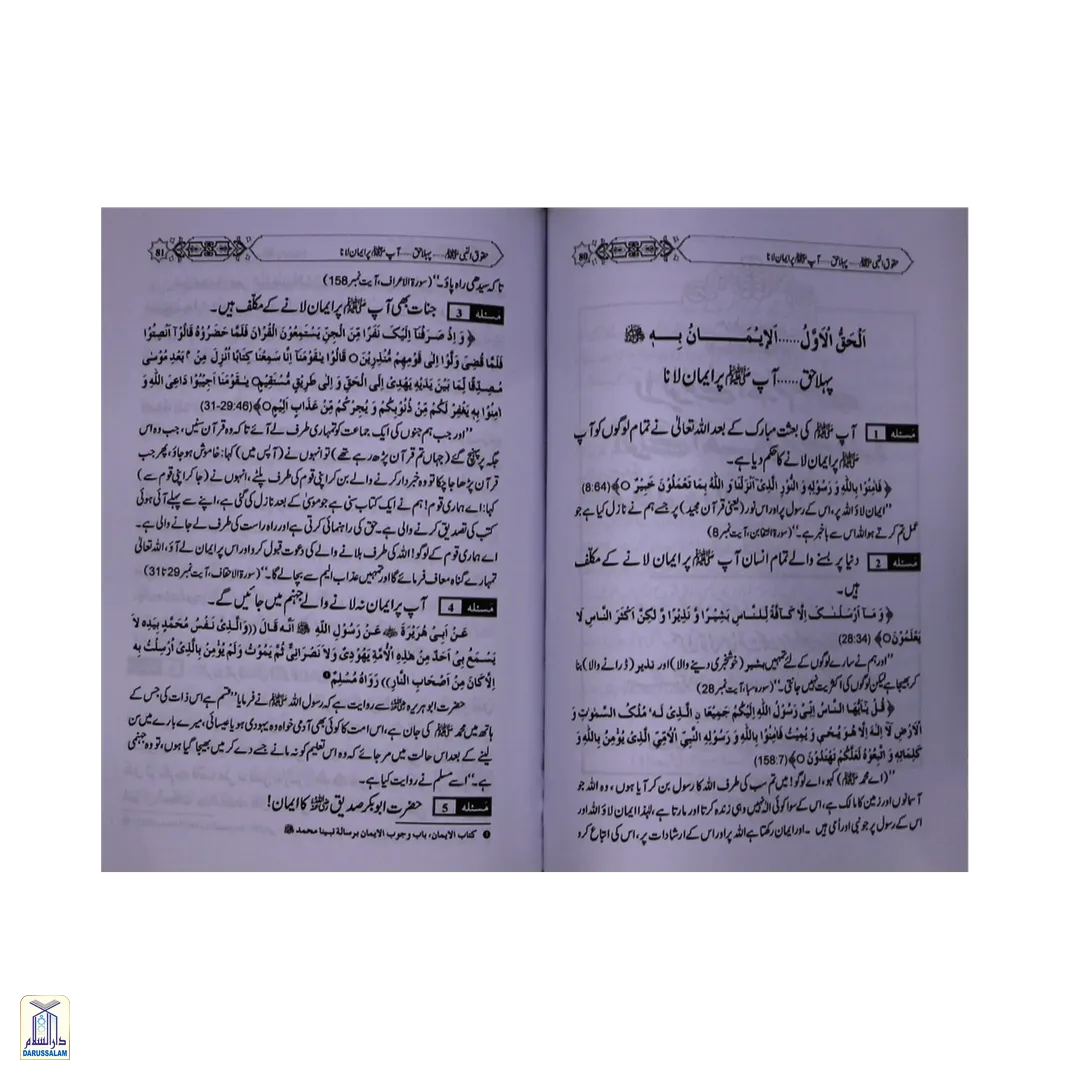 حقوق النبی ﷺ..... پہلا حق.... آپ ﷺ پر ایمان لانا
80
اَلْحَقُّ الْاَوَّلُ......اَلْاِیْمَــــانُ بِــهٖ ﷺ
پہلا حق......آپ ﷺ پر ایمان لانا
مسئلہ 1 آپ ﷺ کی بعثت مبارک کے بعد اللہ تعالیٰ نے تمام لوگوں کو آپ
ﷺ پر ایمان لانے کا حکم دیا ہے۔
﴿ فَاٰمِنُوْا بِاللّٰهِ وَ رَسُوْلِهٖ وَ النُّوْرِ الَّذِیْٓ اَنْزَلْنَا وَ اللّٰهُ بِمَا تَعْمَلُوْنَ خَبِیْرٌ ○ ﴾ (8:64)
’’ایمان لاؤ اللہ پر، اس کے رسول پر اور اس نور (یعنی قرآن مجید) پر جسے ہم نے نازل کیا ہے جو
عمل تم کرتے ہو اللہ اس سے باخبر ہے۔‘‘ (سورۃ التغابن، آیت نمبر 8)
مسئلہ 2 دنیا پر بسنے والے تمام انسان آپ ﷺ پر ایمان لانے کے مکلّف
ہیں۔
﴿ وَ مَـآ اَرْسَلْنٰـكَ اِلَّا كَـآفَّةً لِّلنَّاسِ بَشِیْـرًا وَّ نَذِیْرًا وَّ لٰكِنَّ اَكْثَرَ النَّاسِ لَا
یَعْلَمُوْنَ○ ﴾ (28:34)
’’اور ہم نے سارے لوگوں کے لئے تمہیں بشیر (خوشخبری دینے والا) اور نذیر (ڈرانے والا) بنا
کر بھیجا ہے لیکن لوگوں کی اکثریت نہیں جانتی۔‘‘ (سورہ سبا، آیت نمبر 28)
﴿ قُـلْ یٰٓاَیُّهَا النَّاسُ اِنِّیْ رَسُوْلُ اللّٰهِ اِلَیْكُمْ جَمِیْعَا نِ الَّـذِیْ لَـهٗ مُلْـكُ السَّمٰوٰتِ وَ
الْاَرْضِ لَآ اِلٰـهَ اِلَّا هُـوَ یُـحْیٖ وَ یُمِیْتُ فَاٰمِنُوْا بِاللّٰهِ وَ رَسُوْلِهِ النَّبِیِّ الْاُمِّیِّ الَّذِیْ یُؤْمِنُ بِاللّٰهِ وَ
كَلِمٰتِهٖ وَ اتَّبِعُوْهُ لَعَلَّكُمْ تَهْتَدُوْنَ ○ ﴾ (158:7)
’’(اے محمد ﷺ) کہو، اے لوگو! میں تم سب کی طرف اللہ کا رسول بن کر آیا ہوں، وہ اللہ جو
آسمانوں اور زمین کا مالک ہے، اس کے سوا کوئی الٰہ نہیں وہی زندہ کرتا اور مارتا ہے، لہٰذا ایمان لاؤ اللہ اور
اس کے رسول پر جو نبی اور اُمی ہیں۔ اور ایمان رکھتا ہے اللہ پر اور اس کے ارشادات پر، اس کی اتباع کرو
حقوق النبی ﷺ..... پہلا حق.... آپ ﷺ پر ایمان لانا
81
تاکہ سیدھی راہ پاؤ۔‘‘ (سورۃ الاعراف، آیت نمبر 158)
مسئلہ 3 جنات بھی آپ ﷺ پر ایمان لانے کے مکلّف ہیں۔
﴿ وَ اِذْ صَرَفْنَآ اِلَیْكَ نَفَرًا مِّنَ الْجِنِّ یَسْتَمِعُوْنَ الْقُرْاٰنَ فَلَمَّا حَضَرُوْهُ قَالُوْٓا اَنْصِتُوْا
فَلَمَّا قُضِیَ وَلَّوْا اِلٰی قَوْمِهِمْ مُّنْذِرِیْنَ ○ قَالُوْا یٰقَوْمَنَآ اِنَّا سَمِعْنَا كِتٰبًا اُنْزِلَ مِنْ ۢ بَعْدِ مُوْسٰی
مُصَدِّقًا لِّمَا بَیْنَ یَدَیْهِ یَهْدِیْٓ اِلَی الْحَقِّ وَ اِلٰی طَرِیْقٍ مُّسْتَقِیْمٍ○ یٰقَوْمَنَآ اَجِیْبُوْا دَاعِیَ اللّٰهِ وَ
اٰمِنُوْا بِهٖ یَغْفِرْ لَكُمْ مِّنْ ذُنُوْبِكُمْ وَ یُجِرْكُمْ مِّنْ عَذَابٍ اَلِیْمٍ ○﴾ (31-29:46)
’’اور جب ہم جنوں کی ایک جماعت کو تمہاری طرف لے آئے تاکہ وہ قرآن سنیں، جب وہ اس
جگہ پر پہنچ گئے (جہاں تم قرآن پڑھ رہے تھے) تو انہوں نے (آپس میں) کہا: خاموش ہو جاؤ، پھر جب
قرآن پڑھا جا چکا تو وہ خبردار کرنے والے بن کر اپنی قوم کی طرف پلٹے، انہوں نے (جا کر اپنی قوم سے)
کہا: اے ہماری قوم! ہم نے ایک کتاب سنی ہے جو موسیٰ کے بعد نازل کی گئی ہے، اپنے سے پہلے آئی ہوئی
کتب کی تصدیق کرنے والی ہے۔ حق کی راہنمائی کرتی ہے اور راہ راست کی طرف لے جانے والی ہے۔
اے ہماری قوم کے لوگو! اللہ کی طرف بلانے والے کی دعوت قبول کرو اور اس پر ایمان لے آؤ، اللہ تعالیٰ
تمہارے گناہ معاف فرمائے گا اور تمہیں عذاب الیم سے بچا لے گا۔‘‘ (سورۃ الاحقاف، آیت نمبر 29 تا 31)
مسئلہ 4 آپ پر ایمان نہ لانے والے جہنم میں جائیں گے۔
عَنْ اَبِیْ هُرَیْرَةَ ؓ عَنْ رَسُوْلِ اللّٰهِ ﷺ اَنَّـهٗ قَـالَ ((وَالَّـذِیْ نَفْسُ مُحَمَّدٍ بِیَدِهٖ لَا
یَسْـمَـعُ بِیْ اَحَدٌ مِنْ هٰذِهِ الْاُمَّةِ یَهُوْدِیٌّ وَلَا نَصْرَانِیٌّ ثُمَّ یَمُوْتُ وَلَمْ یُؤْمِنْ بِالَّذِیْ اُرْسِلْتُ بِهٖ
اِلَّا كَانَ مِنْ اَصْحَابِ النَّارِ)) رَوَاهُ مُسْلِمٌ ❶
حضرت ابو ہریرہ ؓ سے روایت ہے کہ رسول اللہ ﷺ نے فرمایا ’’قسم ہے اس ذات کی جس کے
ہاتھ میں محمد ﷺ کی جان ہے، اس امت کا کوئی بھی آدمی خواہ وہ یہودی ہو یا عیسائی، میرے بارے میں سن
لینے کے بعد اس حالت میں مر جائے کہ وہ اس تعلیم کو نہ مانے جسے دے کر میں بھیجا گیا ہوں، تو وہ جہنمی
ہے۔‘‘ اسے مسلم نے روایت کیا ہے۔
مسئلہ 5 حضرت ابوبکر صدیق ؓ کا ایمان!
❶ کتاب الایمان، باب وجوب الایمان برسالة نبینا محمد ﷺ
دارالسلام
DARUSSALAM